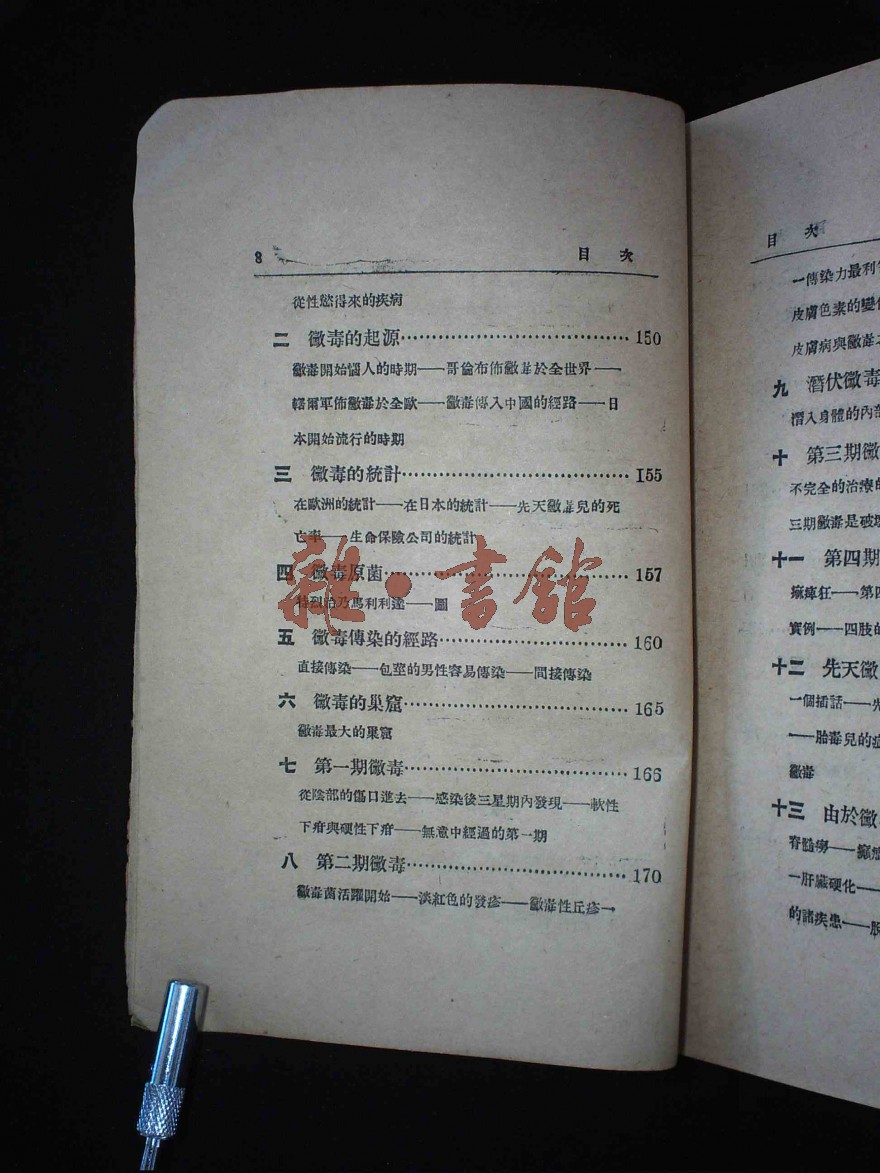 8 目次
從性慾得來的疾病
二 黴毒的起源 150
黴毒開始惱人的時期——哥倫布佈黴毒於全世界——
轄爾軍佈黴毒於全歐——黴毒傳入中國的經路——日
本開始流行的時期
三 黴毒的統計 155
在歐洲的統計——在日本的統計——先天黴毒兒的死
亡率——生命保險公司的統計
四 黴毒原菌 157
乃馬利利達——圖
五 黴毒傳染的經路 160
直接傳染——包莖的男性容易傳染——間接傳染
六 黴毒的巢窟 165
黴毒最大的巢窟
七 第一期黴毒 166
從陰部的傷口進去——感染後三星期內發現——軟性
下疳與硬性下疳——無意中經過的第一期
八 第二期黴毒 170
黴毒菌活躍開始——淡紅色的發疹——黴毒性丘疹—
目次
一傳染力最利
皮膚色素的變
皮膚病與黴毒
九 潛伏黴毒
潛入身體的內部
十 第三期黴
不完全的治療的
三期黴毒是破壞
十一 第四期
痲痺狂——第四
實例——四肢的
十二 先天黴
一個插話——先
——胎毒兒的症
黴毒
十三 由於黴
脊髓癆——癲癇
一肝臟硬化——
的諸疾患——
雜·書館